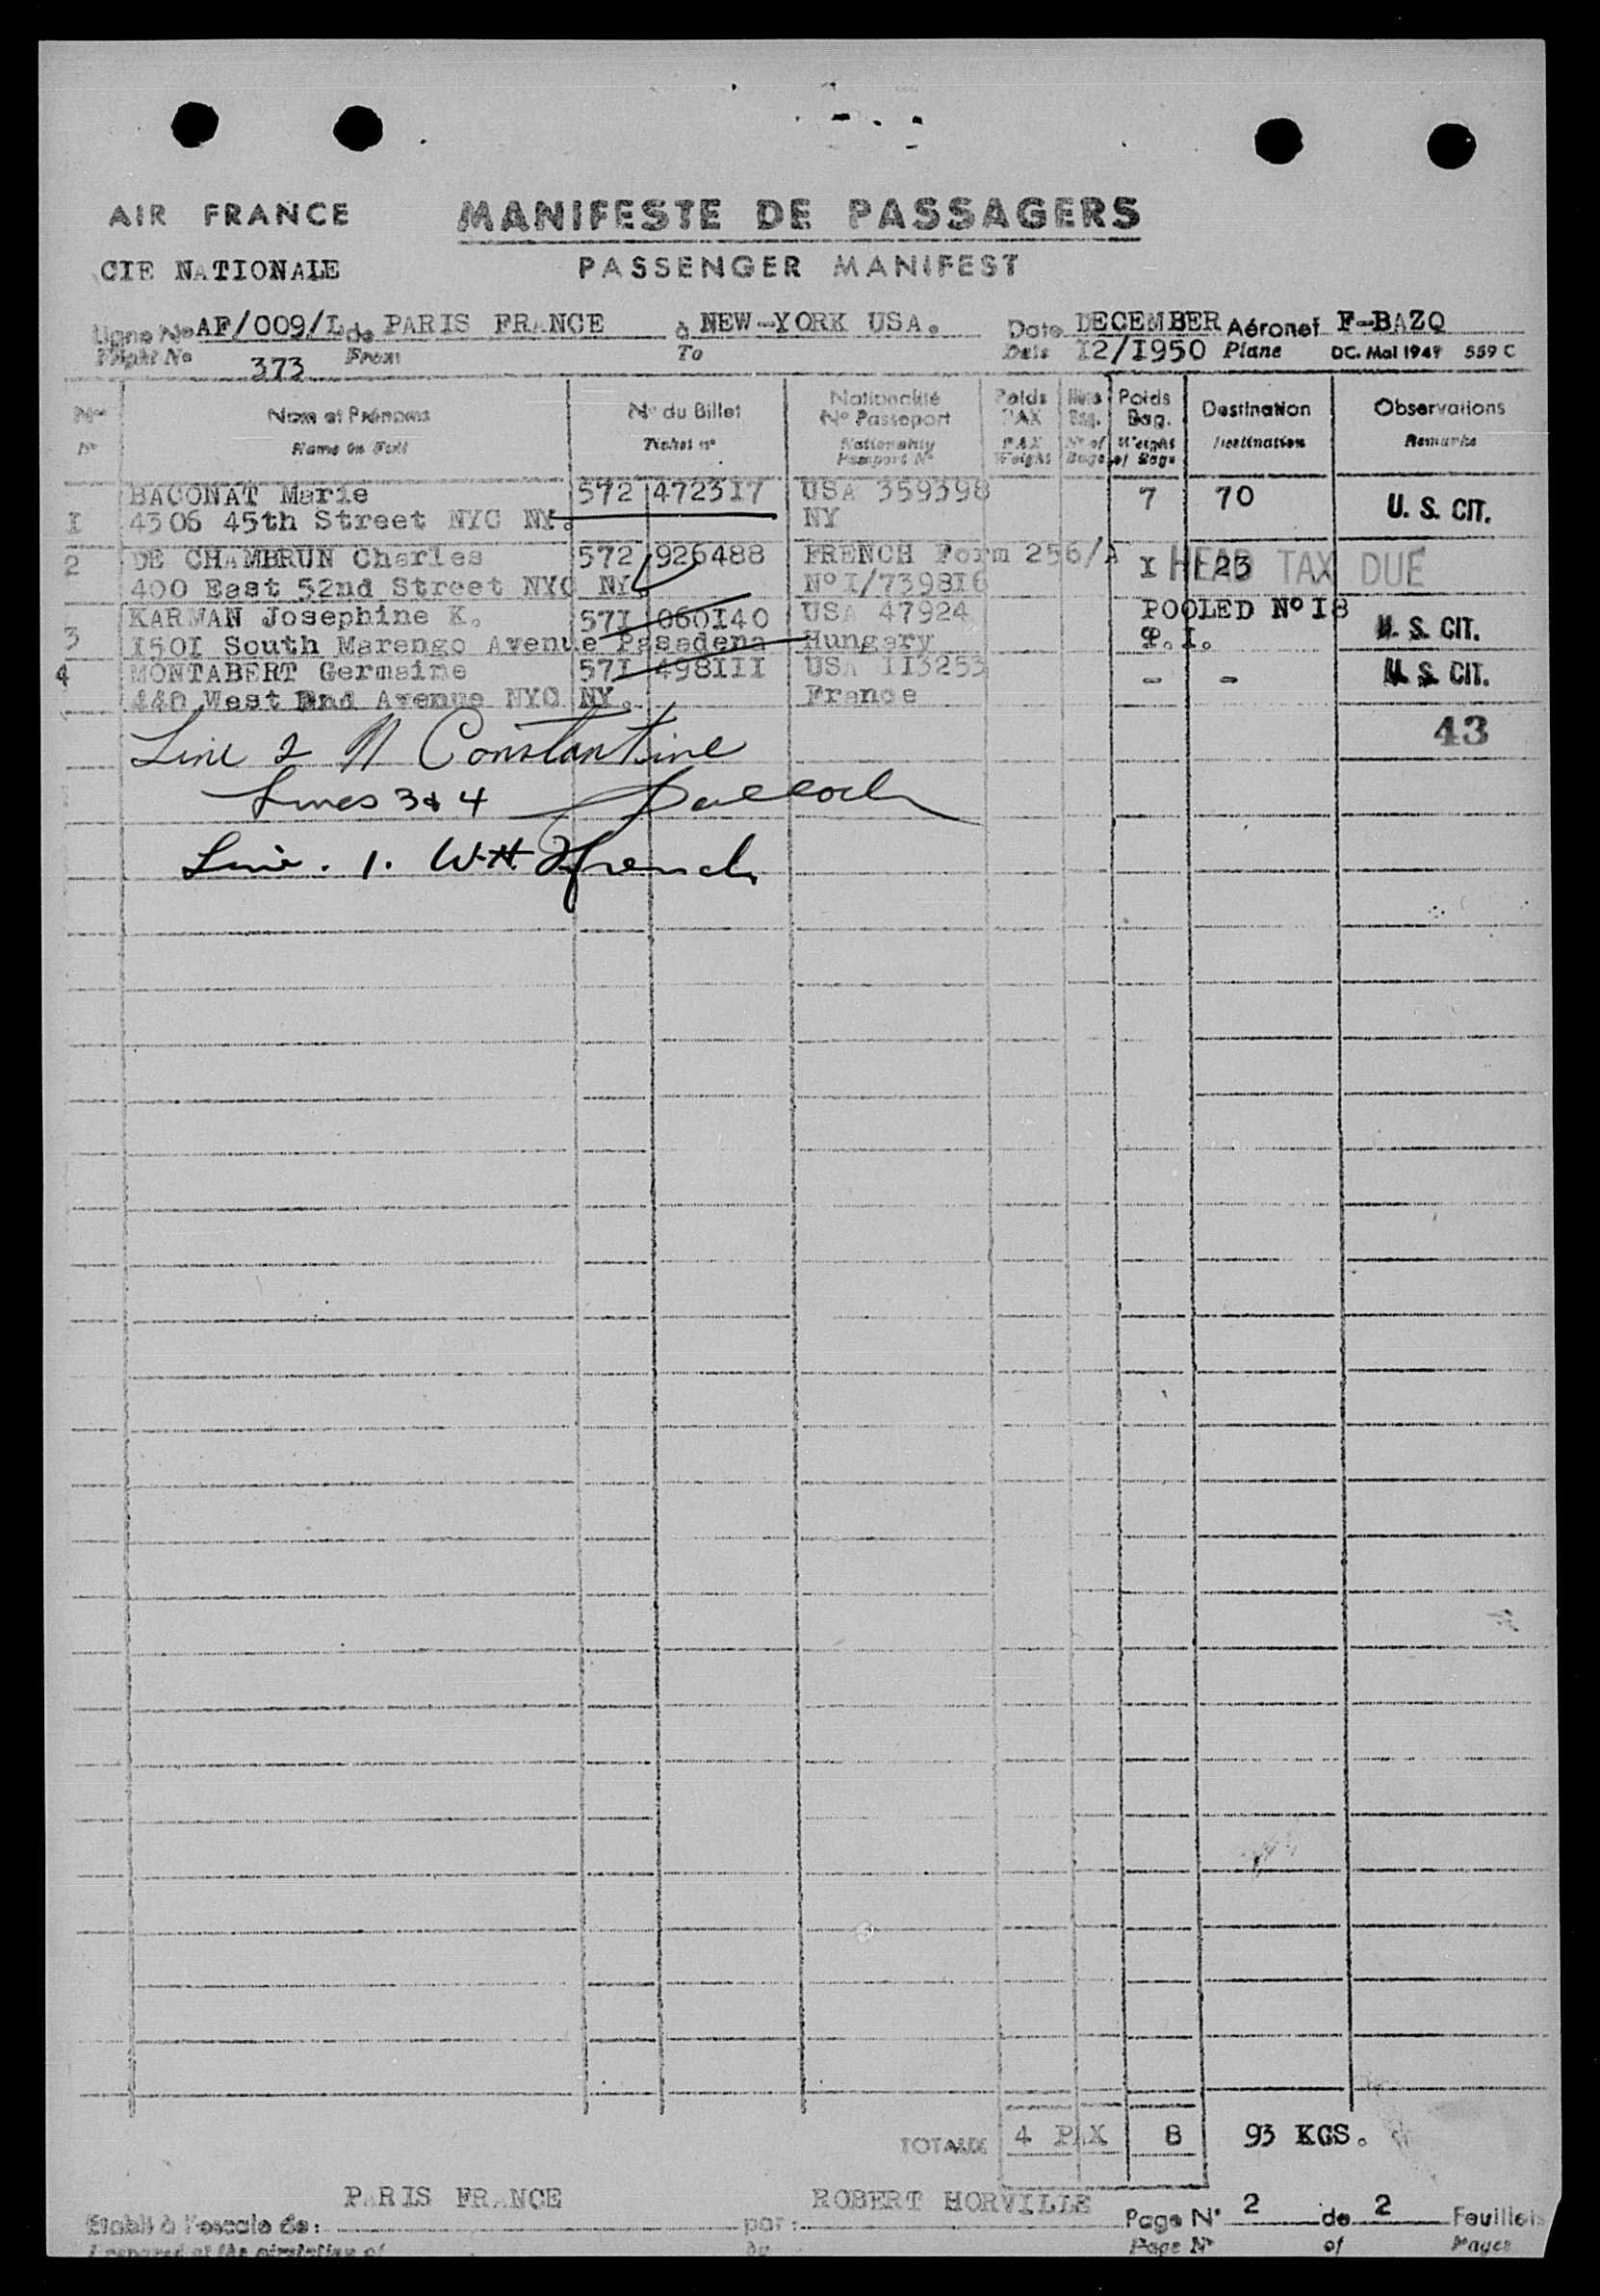 AIR FRANCE MANIFESTE DE PASSAGERS
CIE NATIONALE PASSENGER MANIFEST
Ligne No AF/009/L de PARIS FRANCE à NEW-YORK USA. Date DECEMBER Aéronef F-BAZQ
Flight No 373 From To Date I2/I950 Plane DC. Mai 1949 559 C
Nos Nom et Prénoms No du Billet Nationalité No Passeport Poids PAX Nbre Bag. Poids Bag. Destination Observations
No Name in Full Ticket no Nationality Passport No PAX Weight Nr of Bags Weight of Bags Destination Remarks
BACONAT Marie 572 4723I7 USA 359398 7 70 U. S. CIT.
I 4306 45th Street NYC NY. NY
2 DE CHAMBRUN Charles 572 926488 FRENCH Form 256/A I 23 HEAD TAX DUE
400 East 52nd Street NYC NY. No I/7398I6
KARMAN Josephine K. 57I 060I40 USA 47924 POOLED No I8 U. S. CIT.
3 I50I South Marengo Avenue Pasadena Hungary P.I.
4 MONTABERT Germaine 57I 498III USA II3253 - - U. S. CIT.
440 West End Avenue NYC NY. France
Line 2 N Constantine 43
Lines 3 & 4
Line. 1. WH French
TOTAUX 4 PAX 8 93 KGS.
PARIS FRANCE ROBERT HORVILLE
Etabli à l'escale de: par: Page No 2 de 2 Feuillets
Prepared at the air station of by Page No of Pages